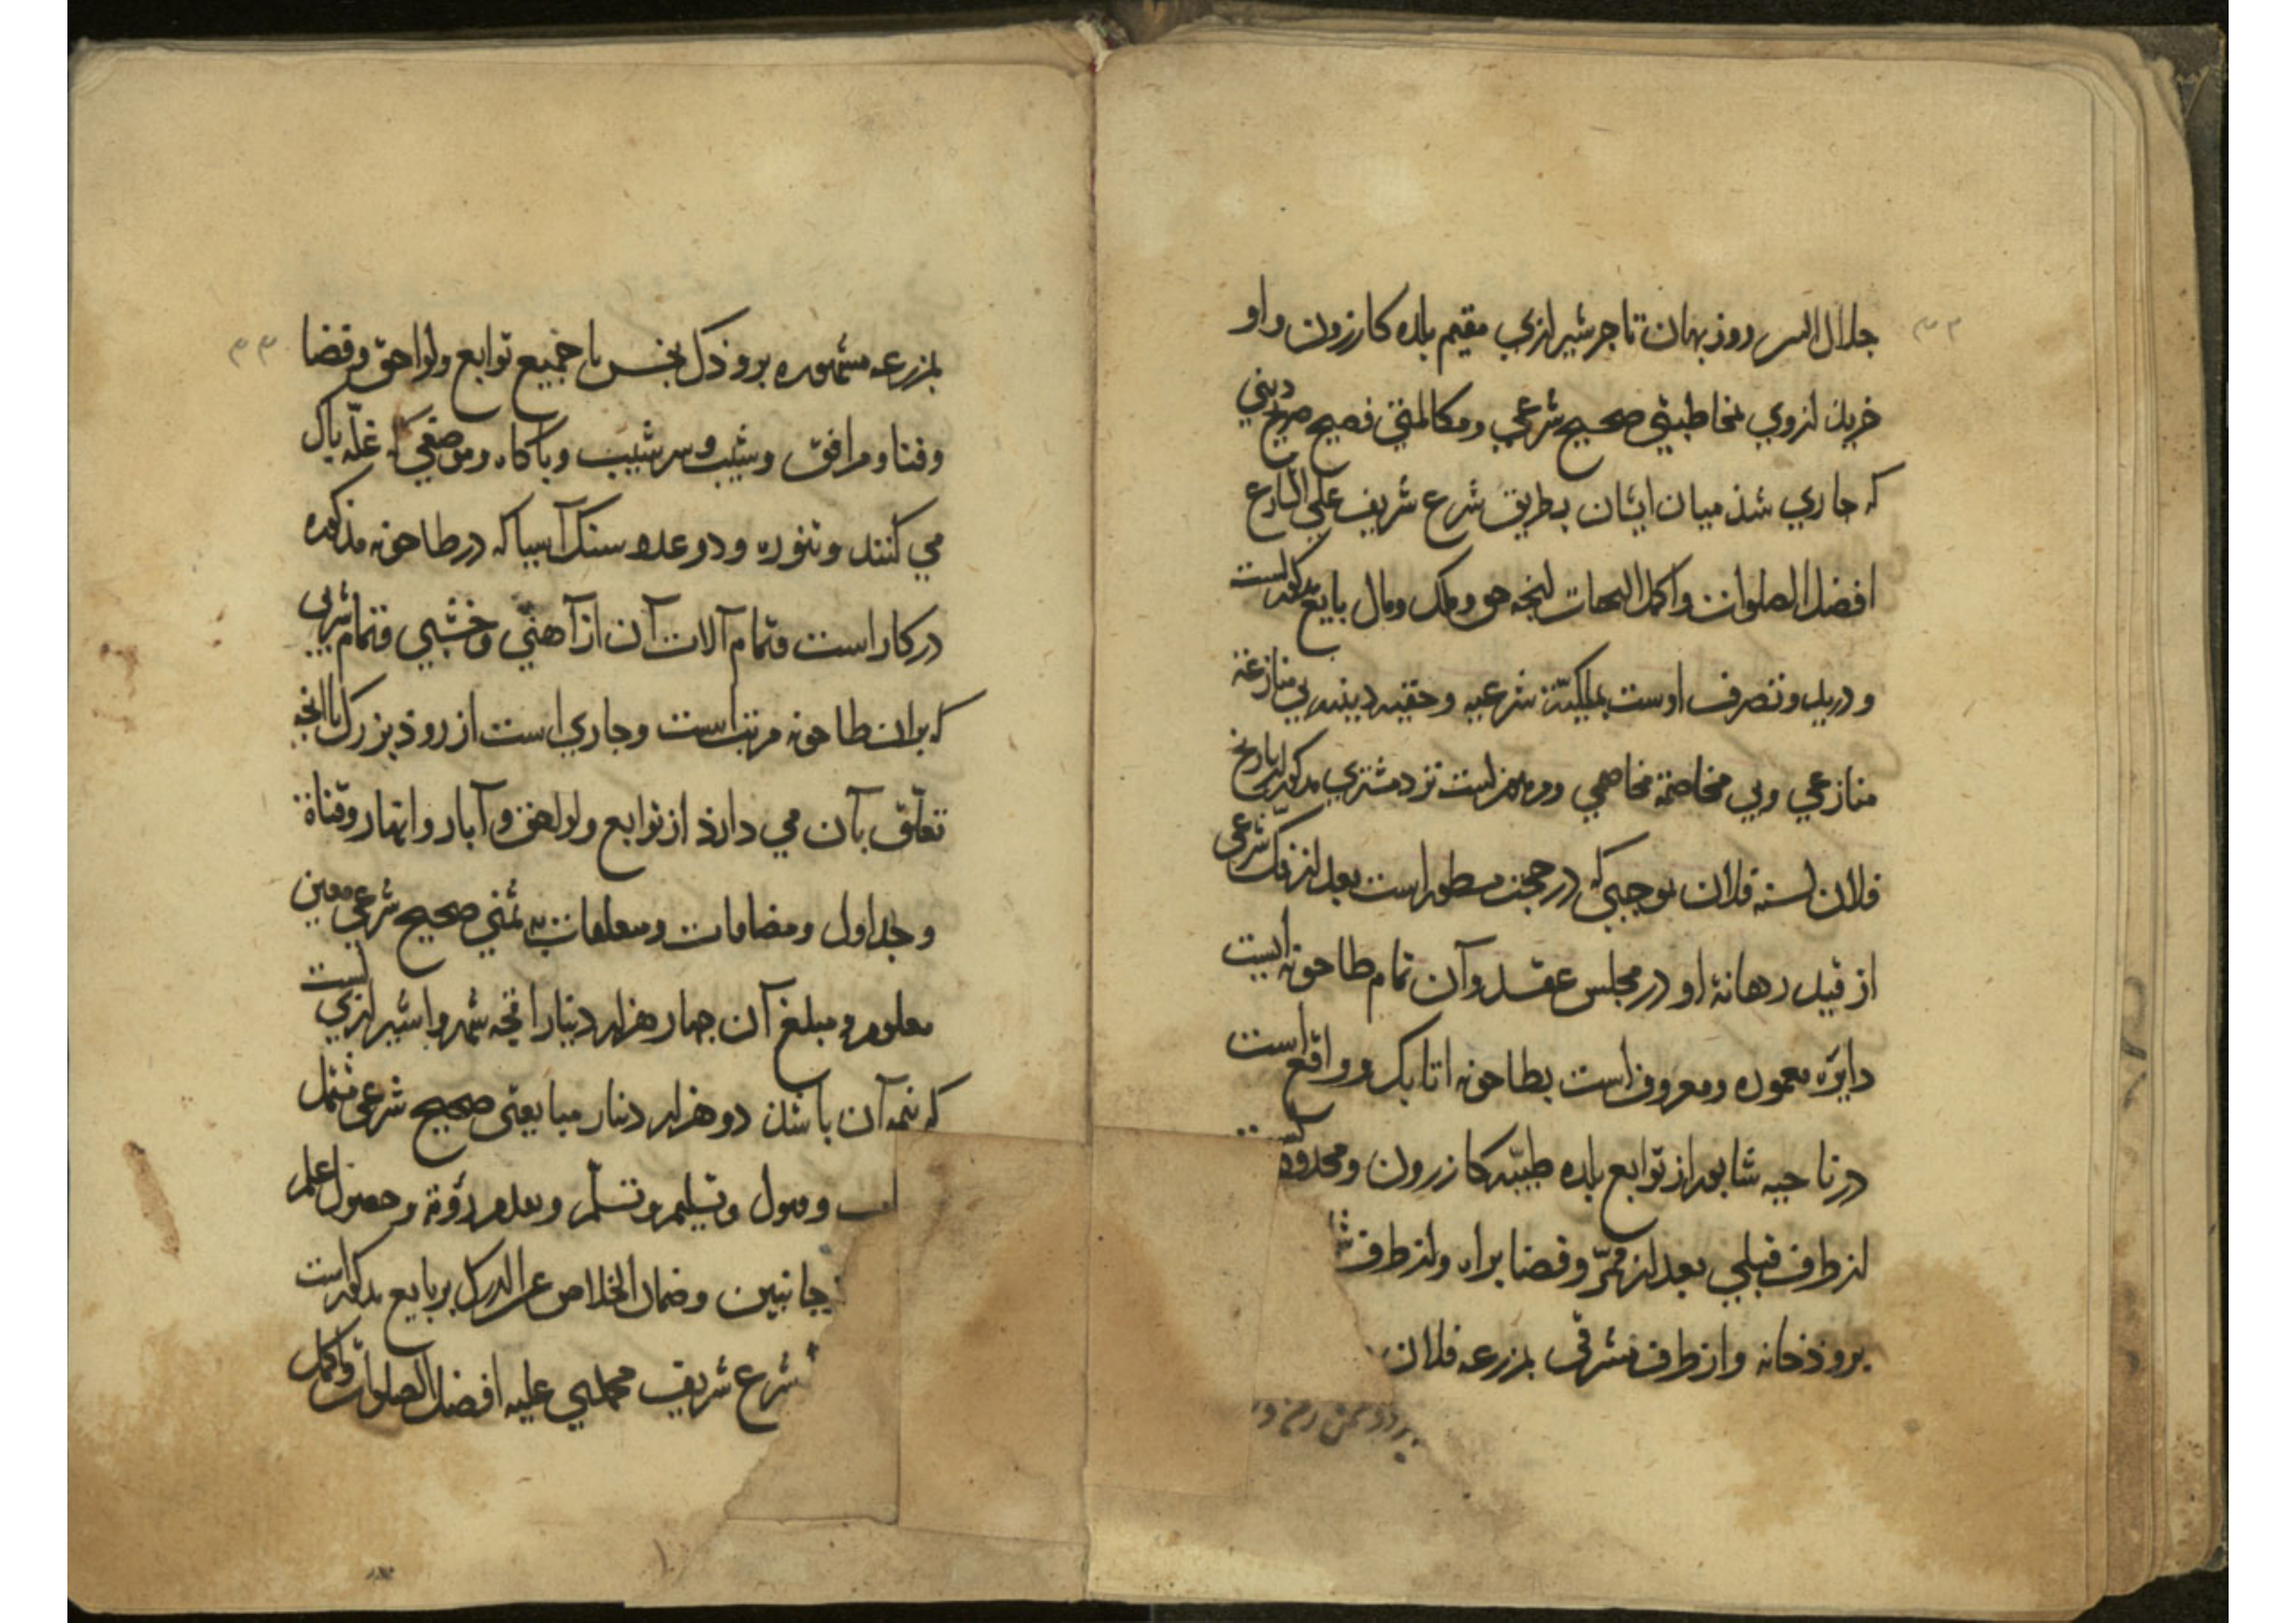 جلال الدین روزبهان تاجر شیرازی مقیم بلده کازرون و او
خرید از وی مخاطبتی صحیح شرعی و مکالمتی فصیح صریح دینی
که جاری شذ میان ایشان بطریق شرع شریف علی الشارع
افضل الصلوات واکمل التحیات انچه حق وملک ومال بایع مذکورست
و در ید و تصرف اوست بملکیّة شرعیه وحقیه دینیه بی منازعة
منازعی وبی مخاصمة مخاصمی ومرهونست نزد مشتری مذکور از تاریخ
فلان لسنه فلان بموجبی که در حجت مسطور است بعد از فک شرعی
از قید رهانۀ او در مجلس عقد وآن تمام طاحونه ایست
دایره معموره ومعروف است بطاحونه اتابک و واقع است
در ناحیه شابور از توابع بلده طیبّه کازرون ومحدود
از طرف قبلی بعد از ممرّ وفضا براه واز طرف
بروذخانه واز طرف شرقی بمزرعه فلان
۳۳
بمزرعه مشهوره بروذک بخس با جمیع توابع ولواحق وفضا
وفنا ومرافق وشیب وسرشیب وباکاه وموضعی که غلّه پاک
می کنند وتنوره و دو عدد سنک آسیا که در طاحونه مذکوره
در کار است وتمام آلات آن از آهنی وخشبی وتمام شربی
که بران طاحونه مرتب است وجاری است از روذ بزرک با انچه
تعلّق بآن می دارذ از توابع ولواحق وآبار وانهار وقناة
وجداول ومضافات ومتعلقات به ثمنی صحیح شرعی معین
معلوم ومبلغ آن چهار هزار دینار اقچه شهروا شیرازی است
که نیمه آن باشذ دو هزار دینار مبایعتی صحیح شرعی مشتمل
وقبول وتسلیم وتسلّم وتقدم رؤیة وحصول علم
جانبین وضمان الخلاص عن الدرک بر بایع مذکور است
شرع شریف محمدی علیه افضل الصلوات واکمل